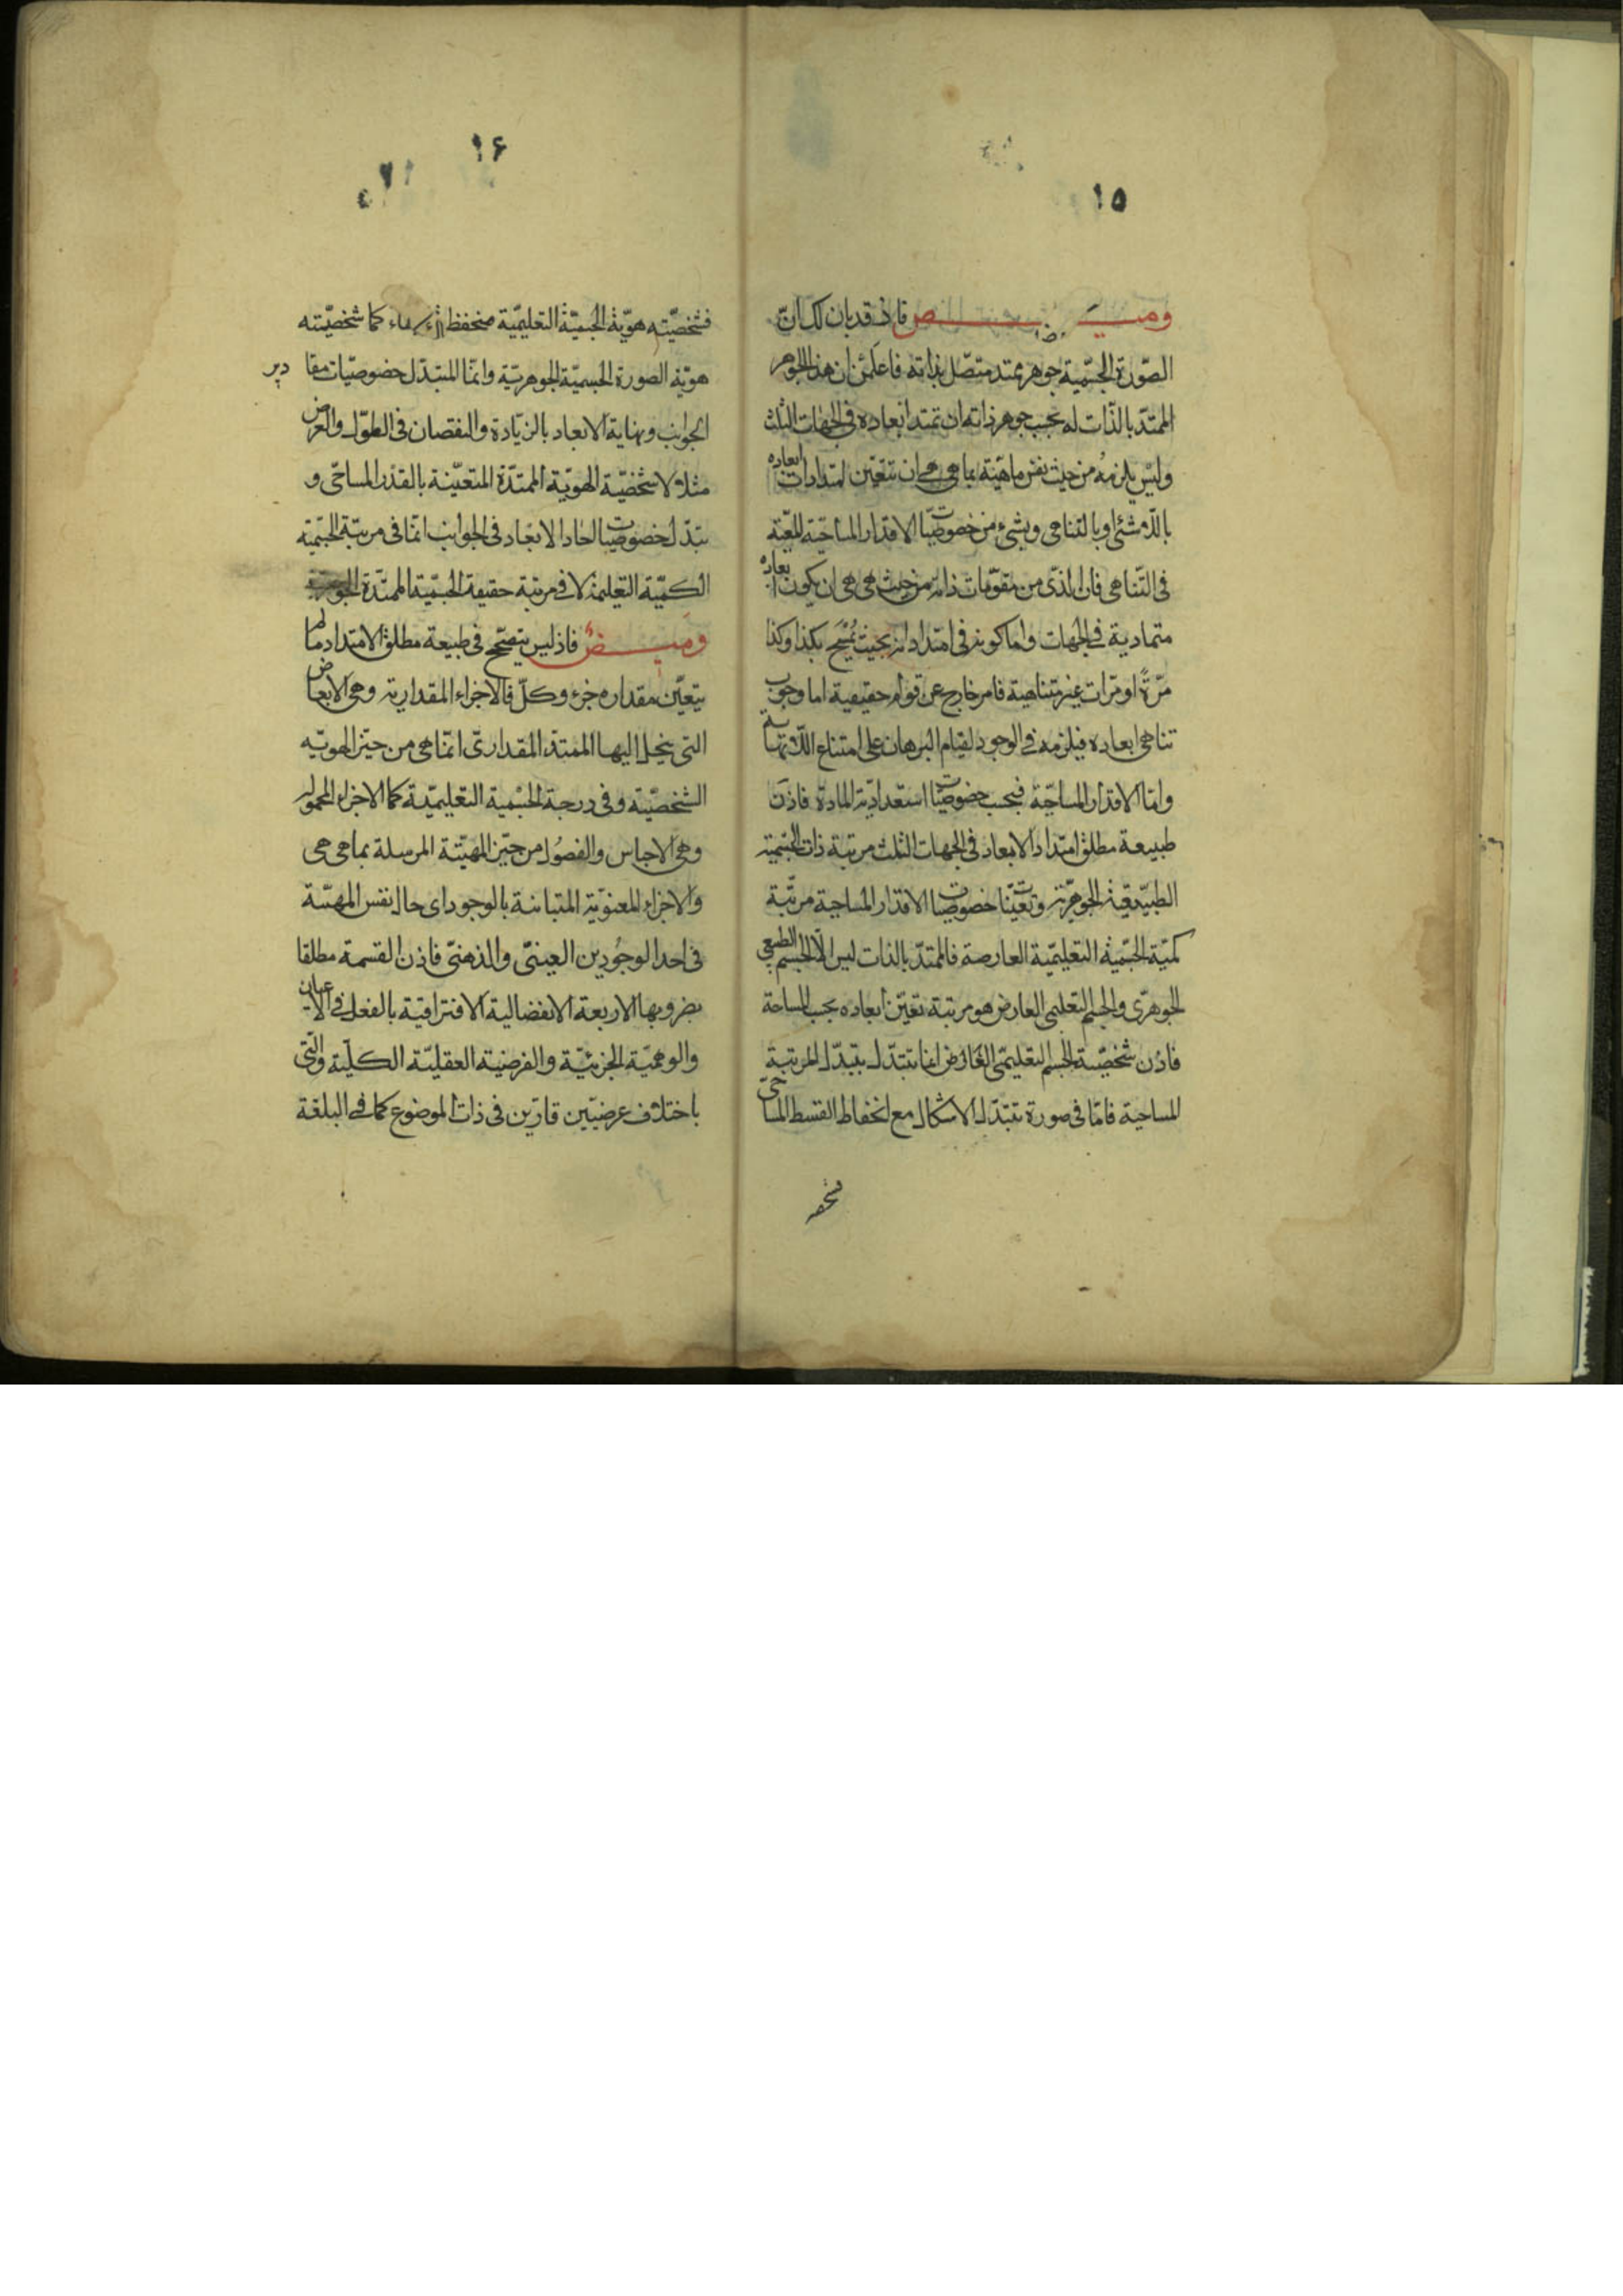 ١٥
وميض فاذ قد بان لك ان
الصّورة الجسّمية جوهر ممتد متصّل بذاته فاعلمن ان هذا الجوهر
الممتدّ بالذّات له بحسب جوهر ذاته ان تمتد ابعاده فى الجهات الثلث
وليس يلزمه من حيث نفس ماهيّته بما هى هى ان تتعّين امتدادات ابعاده
باللّامتناهى وبالتناهى وبشئ من خصوصيّات الاقدار المساحيّة
فى التّناهى فان الذى من مقوّمات ذاته من حيث هى هى ان يكون ابعاده
متمادية فى الجهات واما كونه فى امتداداته بحيث يُمسَح بكذا وكذا
مرّةً او مرّات غير متناهية فامر خارج عن قوام حقيقية اما وجوب
تناهى ابعاده فيلزمه فى الوجود لقيام البرهان على امتناع اللّانهاية
وامّا الاقدار المساحيّة فبحسب خصوصيّات استعداديّة المادة فاذن
طبيعة مطلق امتداد الابعاد فى الجهات الثلث مرتبة ذات الجسّمية
الطبيّعيّة الجوهرّية وتعيّنات خصوصيّات الاقدار المساحية مرتّبة
كميّة الجسّمية التعليميّة العارضة فالممتدّ بالذات ليس الّا الجسم الطبيعى
الجوهرّى والجسم التعليمى العارض هو مرتبة تعيّن ابعاده بحسب المساحة
فاذن شخصيّة الجسم التعليمّى العارض انما تتبدّل بتبدّل المرتبة
المساحية فامّا فى صورة تتبّدل الاشكال مع انحفاظ القسط المساحىّ
١۶
فشخصيّته هويّة الجسميّة التعليميّة منحفظ كما شخصيّته
هويّة الصورة الجسميّة الجوهريّة وانمّا المتبدّل خصوصيّات مقادير
الجوانب ونهاية الابعاد بالزيّادة والنقصان فى الطوّل والعرض
مثلاً لا شخصّية الهويّة الممتدّة المتعيّنة بالقدر المساحّى و
تبدّل خصوصيّات الابعاد فى الجوانب انمّا فى مرتبّة الجسّمية
الكميّة التعليميّة لا فى مرتبة حقيقة الجسّمية الممتدّة
وميض فاذ ليس يتصحّح فى طبيعة مطلق الامتداد ما لم
يتعيّن مقداره جزء وكلّ فالاجزاء المقداريّة وهى الابعاض
التى ينحل اليها الممتدّ المقدارىّ انمّا هى من حيّز الهويّة
الشخصيّة وفى درجة الجسْمية التعليميّة كما الاجزاء المحمولة
وهى الاجناس والفصُول من حيّز المهيّة المرسلة بما هى هى
والاجزاء المعنويّة المتباينة بالوجود اى حال نفس المهيّة
فى احد الوجُودين العينىّ والذهنىّ فاذن القسمة مطلقا
بضروبها الاربعة الانفصالية الافتراقيّة بالفعل فى الاعيان
والوهميّة الجزئيّة والفرضيّة العقليّة الكليّة والتّى
باختلاف عرضيّين قارّين فى ذات الموضوع كما فى البلقة